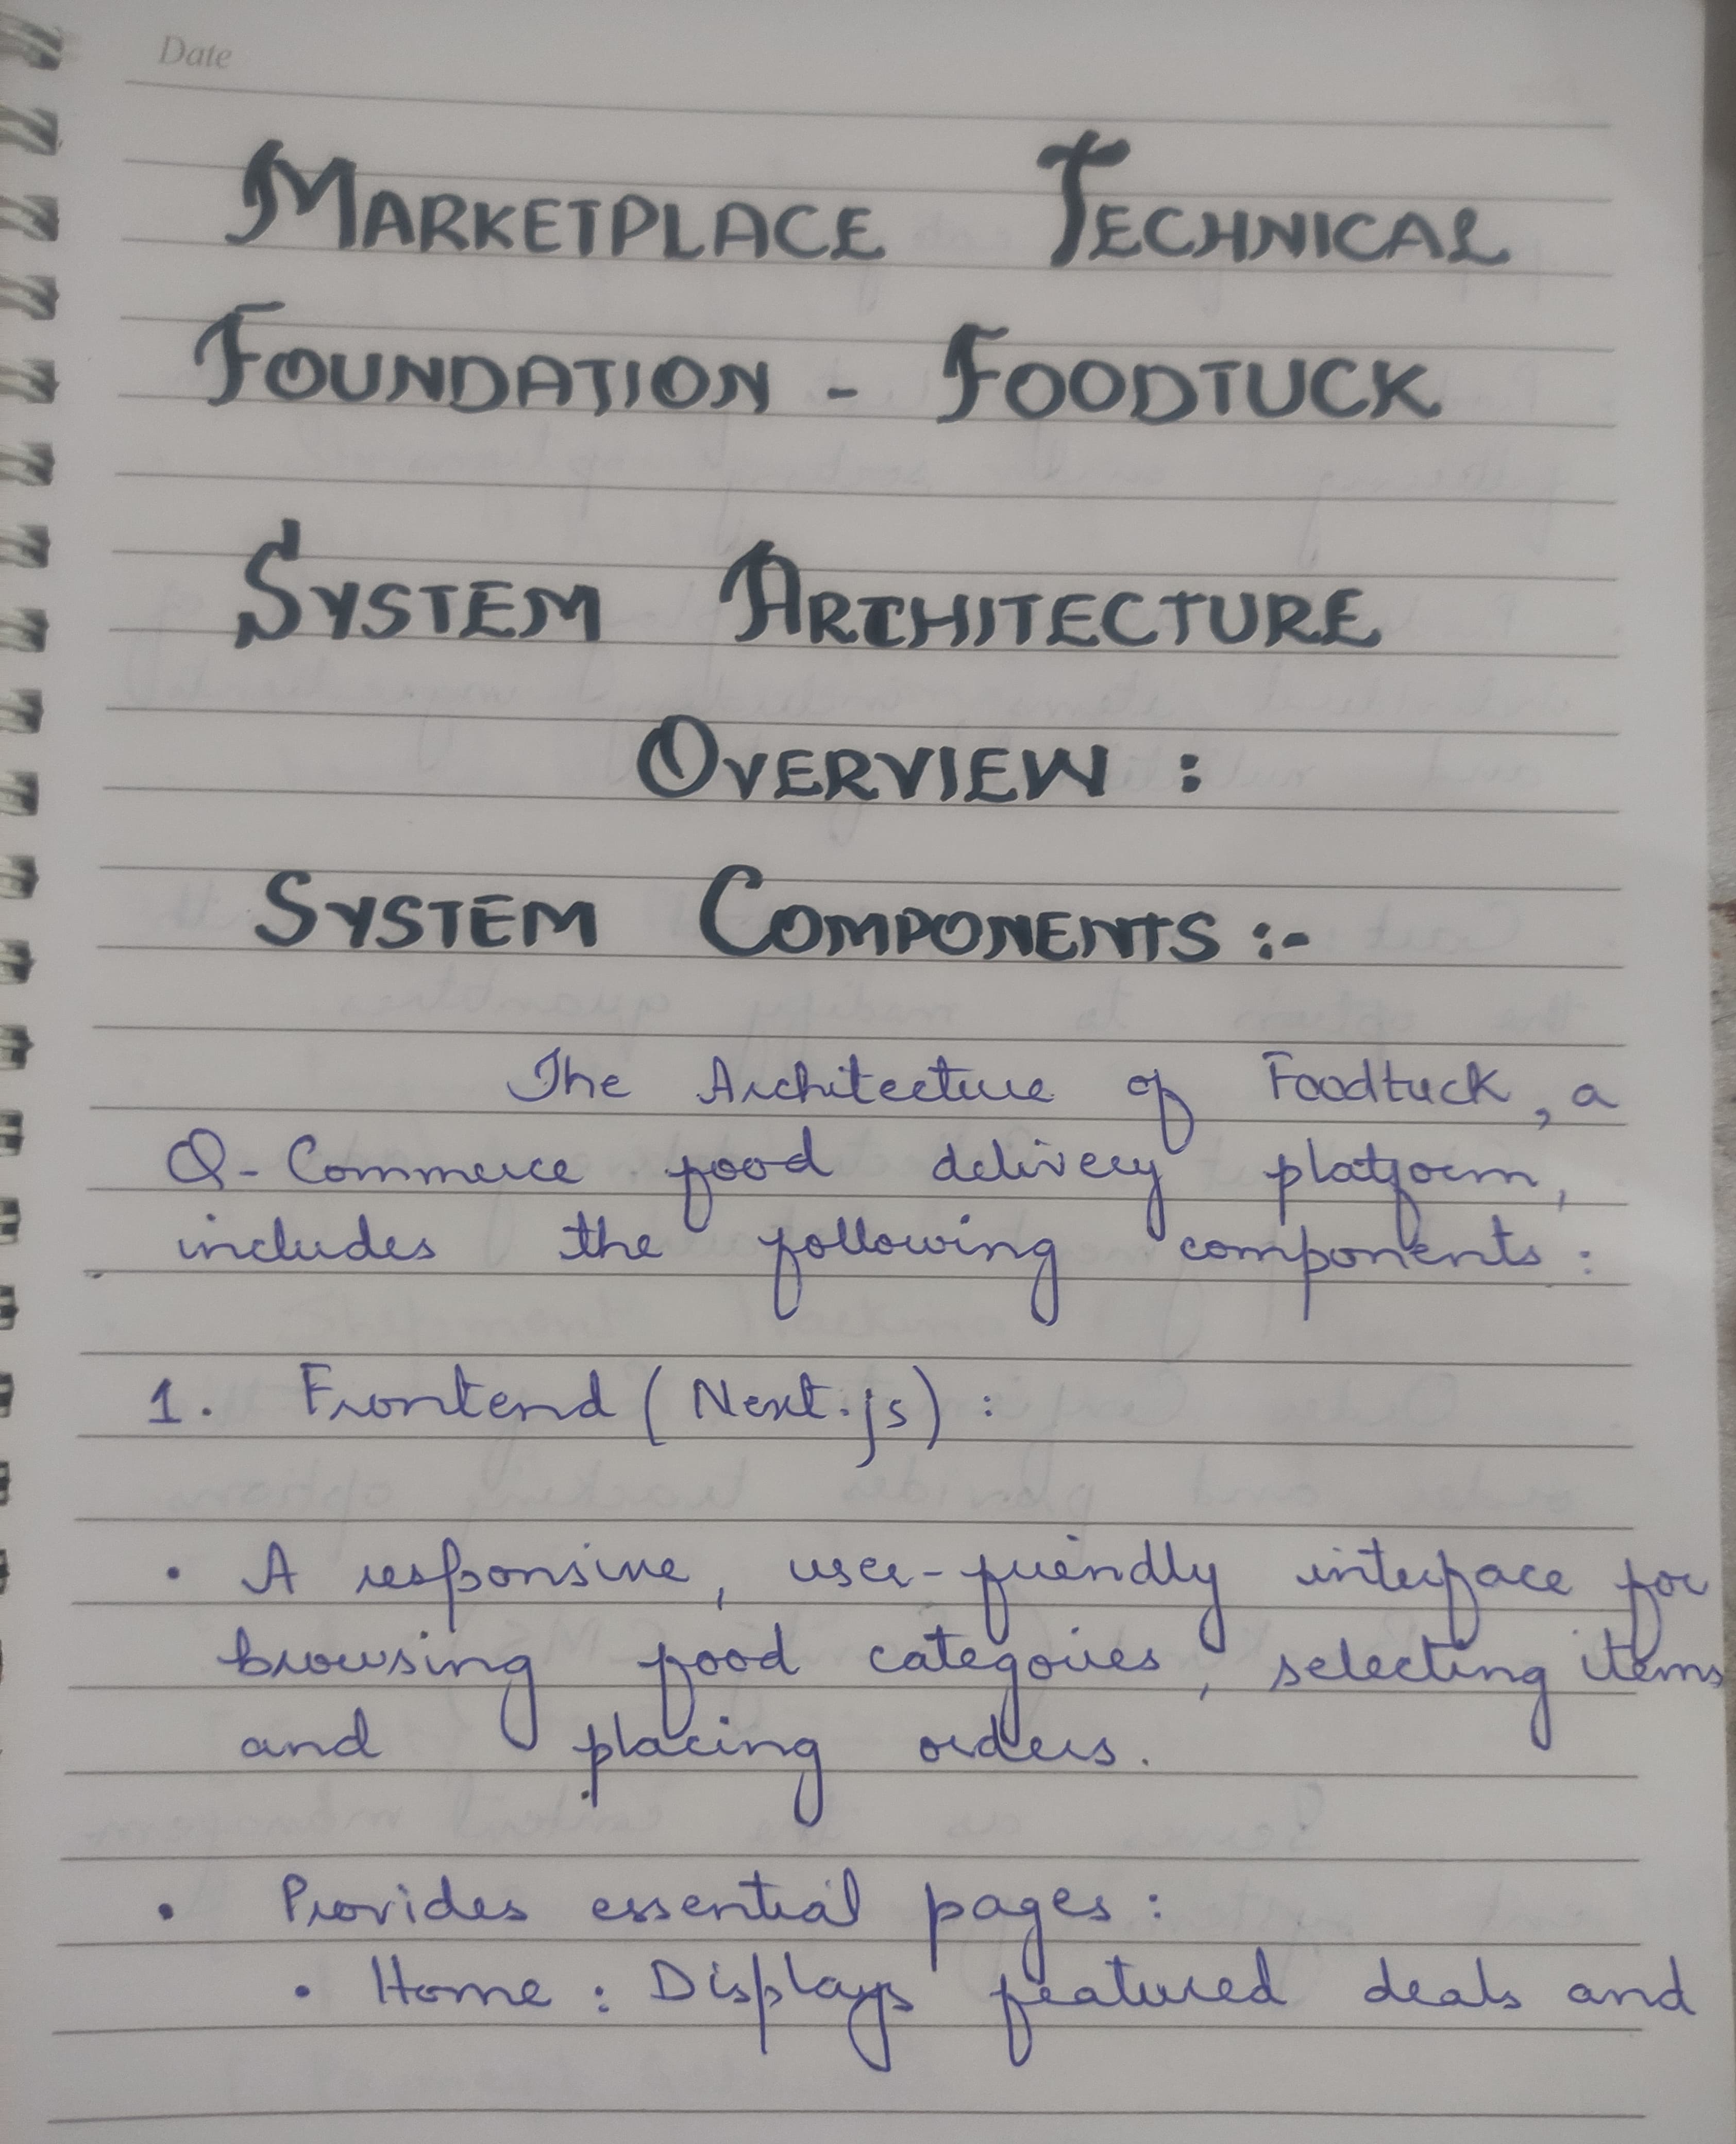 Date
MARKETPLACE TECHNICAL
FOUNDATION - FOODTUCK
SYSTEM ARCHITECTURE
OVERVIEW :
SYSTEM COMPONENTS :-
The Architecture of Foodtuck, a
Q-Commerce food delivery platform,
includes the following components :
1. Frontend (Next.js) :
• A responsive, user-friendly interface for
browsing food categories, selecting items
and placing orders.
• Provides essential pages :
• Home : Displays featured deals and